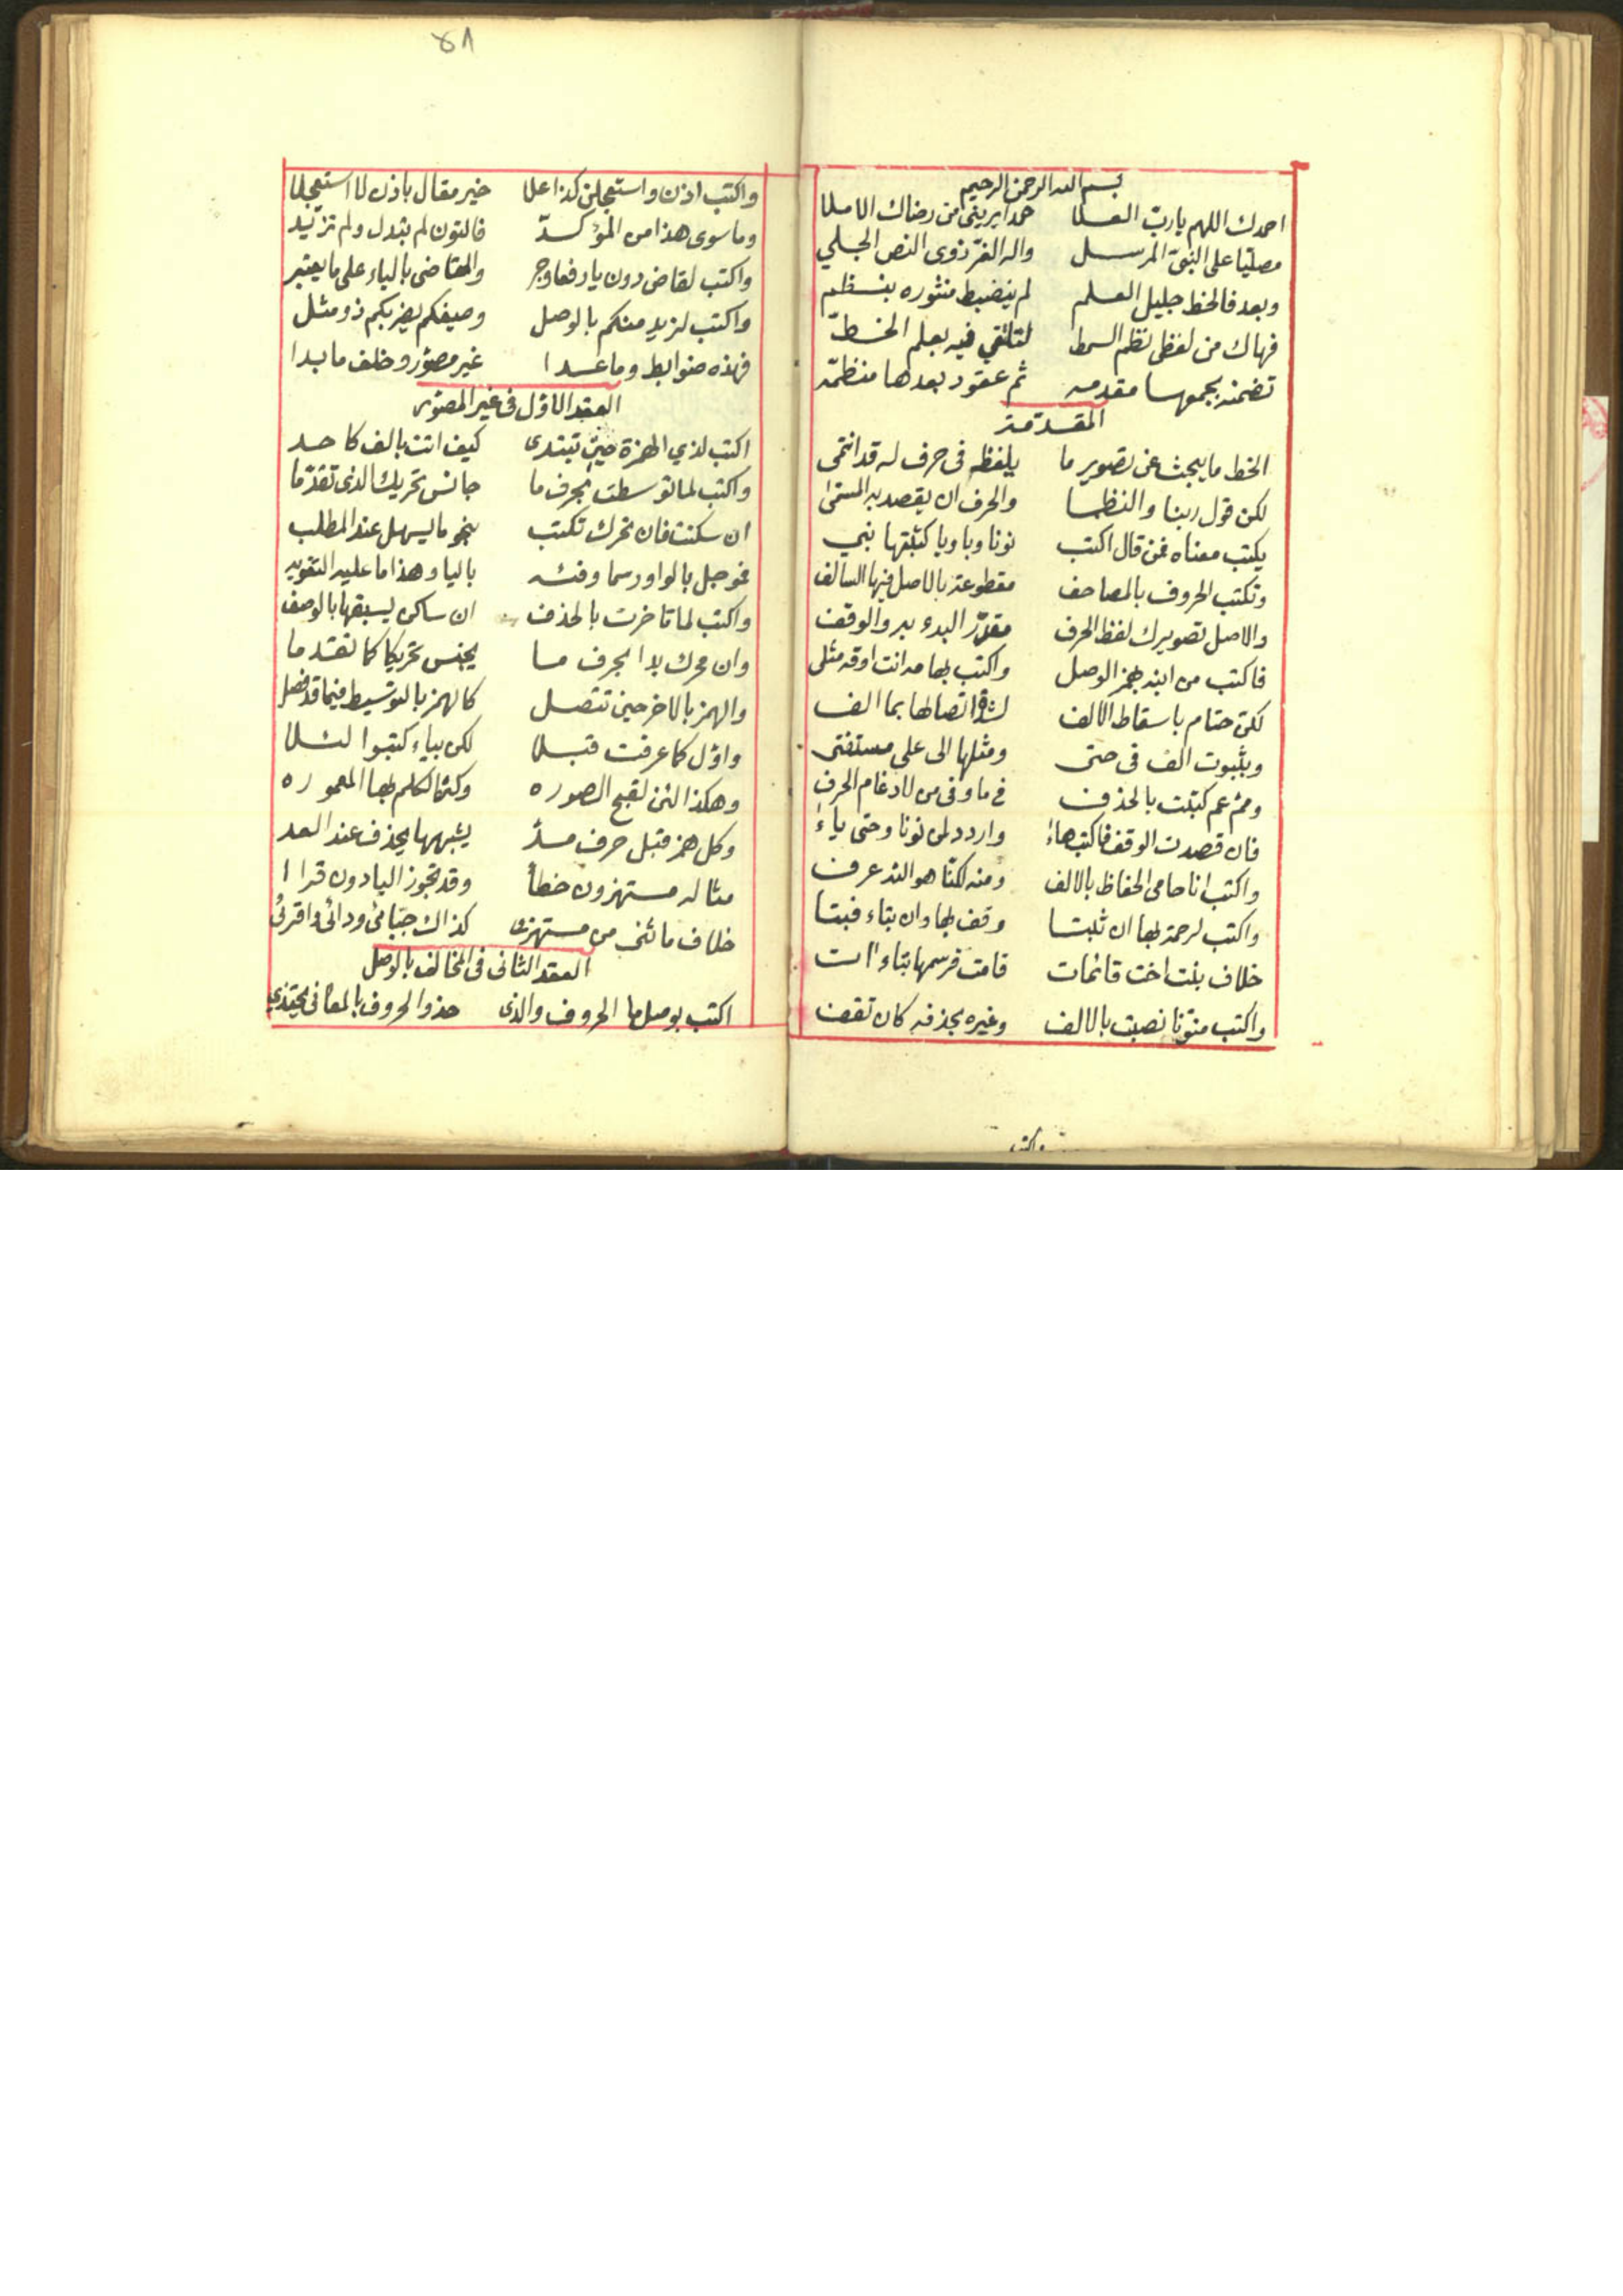 بسم الله الرحمن الرحيم
احمدك اللهم يا رب العلا حمدا يريني من رضاك الاملا
مصليا على النبي المرسل واله الغر ذوى النص الجلي
وبعد فالخط جليل العلم لم ينضبط منثوره بنظم
فهاك من لفظى نظم السمط لتلتقي فيه بعلم الخط
تضمنه بجمعها مقدمه ثم عقود بعدها منظمه
المقدمة
الخط ما يبحث عن تصوير ما يلفظه فى حرف له قد انتمى
لكن قول ربنا والنظما والحرف ان يقصد به المسمى
يكتب معناه فمن قال اكتب نونا وبا ويا كتبتها بني
وتكتب الحروف بالمصاحف مقطوعة بالاصل فيها السالف
والاصل تصويرك لفظ الحرف مقدر البدء به والوقف
فاكتب من ابنه بهمز الوصل واكتب بها مه انت اوقه مثلى
لكن حتام باسقاط الالف لشدة اتصالها بما الف
وبثبوت الف فى حتى ومثلها الى على مستفتى
ومم عم كتبت بالحذف فى ما وفى من لادغام الحرف
فان قصدت الوقف فاكتب هاء واردد لمن نونا وحتى ياء
واكتب انا حامى الحفاظ بالالف ومنه لكنا هو الذ عرف
واكتب لرحمة بها ان ثبتا وقف بها وان بتاء فبتا
خلاف بنت اخت قائمات قامت فرسمها بتاء ات
واكتب منونا نصبت بالالف وغيره بحذفه كان تقف
واكتب
٤٨
واكتب اذن واستعجلن كذا علا خير مقال باذن لا استعجلا
وما سوى هذا من المؤكد فالنون لم يبدل ولم تزيد
واكتب لقاض دون يا رفعا وجر والقاضى بالياء على ما يعتبر
واكتب لزيد منكم بالوصل وصيفكم يضربكم ذو مثل
فهذه ضوابط وما عدا غير مصور وخلف ما بدا
العقد الاول فى غير المصور
اكتب لذي الهمزة حين تبتدى كيف اتت بالف كاحد
واكتب لما توسطت بحرف ما جانس تحريك الذى تقدما
ان سكنت فان تحرك تكتب بنحو ما يسهل عند المطلب
فوجل بالواو رسما وفئه باليا وهذا ما عليه التقويه
واكتب لما تاخرت بالحذف ان ساكن يسبقها بالوصف
وان محرك بدا بحرف ما يجنس تحريكا كما تقدما
والهمز بالاخر حين تتصل كالهمز بالتوسيط فيما قد فصل
واول كما عرفت قبلا لكن بياء كتبوا لئلا
وهكذا لئن لقبح الصوره وكثرة الكلم بها المعموره
وكل همز قبل حرف مد يشبهها يحذف عند العد
مثاله مستهزون خطا وقد تجوز اليا دون قرا ا
خلاف مائنى من مستهزى كذاك جنبائى ودائى واقرئى
العقد الثانى فى المخالف بالوصل
اكتب بوصل ما الحروف والذى حذو الحروف بالمعانى يحتذى